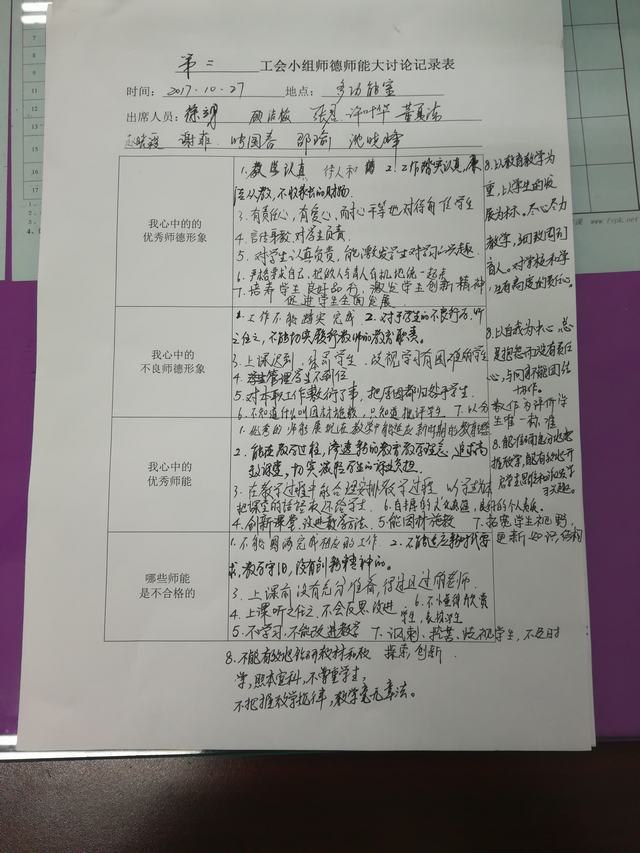 第二 工会小组师德师能大讨论记录表
时间：2017.10.27 地点：多功能室
出席人员：
谢菲 邵瑜 沈晓峰
我心中的的
优秀师德形象
1.教学认真 待人和 2.工作踏实认真,廉
洁从教,不收家长的财物.
3.有责任心,有爱心,耐心平等地对待每一位学生
4.言传身教,对学生负责.
5.对学生认真负责,能激发学生对学习的兴趣.
6.严格要求自己,把教人与育人有机地统一起来
7.培养学生良好品行,激发学生创新精神
促进学生全面发展.
8.以教育教学为
重,以学生的发
展为标,尽心尽力
教学,
育人。对学校和学
生有高度的责任心。
我心中的
不良师德形象
1.工作不能踏实完成. 2.对于学生的不良行为,听
之任之,不能切实履行教师的教育职责。
3.上课迟到,体罚学生,歧视学习有困难的学生
4.管理学生不到位
5.对本职工作敷衍了事,把原因都归咎于学生.
6.不知道什么叫因材施教,只知道批评学生 7.以分
数作为评价学
生唯一标准
8.以自我为中心,总
是抱怨而没有责任
心,与同事不能团结
协作。
我心中的
优秀师能
1.优秀的师能展现在教学中能适应新时期的教育理念
2.能在教学过程,渗透新的教育教学理念,追求高
效课堂,切实减轻学生的课业负担.
3.在教学过程中能合理安排教学过程,以学生为体
把课堂的话语权还给学生. 6.自身的人文素涵,良好的个人素质.
4.创新课堂,改进教学方法. 5.能因材施教 7.拓宽学生视野,
更新知识,结构
8.能准确定位地
把握教学,能有效地开
启学生思维和激发学
习兴趣。
哪些师能
是不合格的
1.不能圆满完成相应的工作. 2.不能适应新时代要
求,教学守旧,没有创新精神的.
3.上课前没有充分准备,得过且过的老师.
4.上课听之任之,不会反思、改进. 6.不懂得欣赏
学生,表扬学生
5.不学习,不能改进教学 7.讽刺、挖苦、歧视学生,不及时
探索,创新.
8.不能有效地钻研教材和教
学,照本宣科,不尊重学生,
不把握教学规律,教学毫无章法。